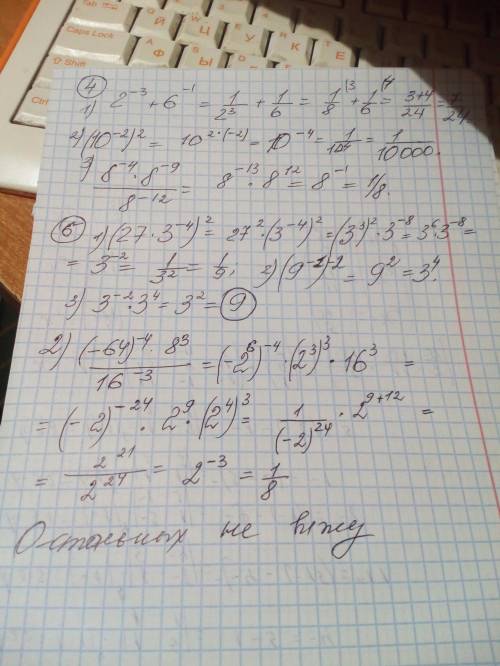 ④
1) 2^{-3} + 6^{-1} = \frac{1}{2^3} + \frac{1}{6} = \frac{1}{8}^{|3} + \frac{1}{6}^{|4} = \frac{3+4}{24} = \frac{7}{24}
2) (10^{-2})^2 = 10^{2·(-2)} = 10^{-4} = \frac{1}{10^4} = \frac{1}{10000}.
3) \frac{8^{-4} · 8^{-9}}{8^{-12}} = 8^{-13} · 8^{12} = 8^{-1} = 1/8.
⑥ 1) (27 · 3^{-4})^2 = 27^2 · (3^{-4})^2 = (3^3)^2 · 3^{-8} = 3^6 · 3^{-8} =
= 3^{-2} = \frac{1}{3^2} = \frac{1}{9}; 2) (9^{-1})^{-2} = 9^2 = 3^4.
3) 3^{-2} · 3^4 = 3^2 = ⑨
2) \frac{(-64)^{-4} · 8^3}{16^{-3}} = (-2^6)^{-4} · (2^3)^3 · 16^3 =
= (-2)^{-24} · 2^9 · (2^4)^3 = \frac{1}{(-2)^{24}} · 2^{9+12} =
= \frac{2^{21}}{2^{24}} = 2^{-3} = \frac{1}{8}
Остальных не вижу
Caps Lock
Shift
Й
Ц
У
К
Ф